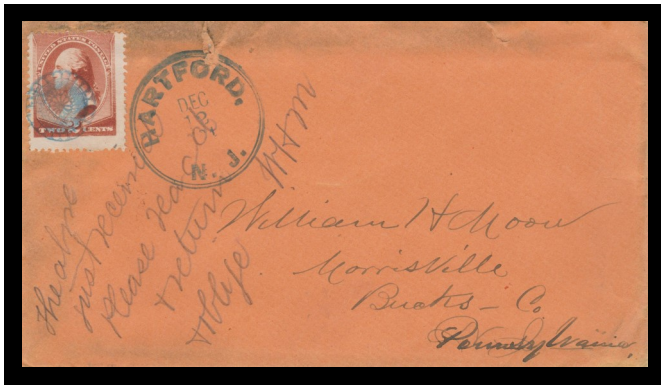 UNITED STATES POSTAGE
TWO CENTS
HARTFORD,
DEC
N. J.
just received
please read
& return
& oblige
WHM
William H Moon
Morrisville
Bucks - Co
Pennsylvania,